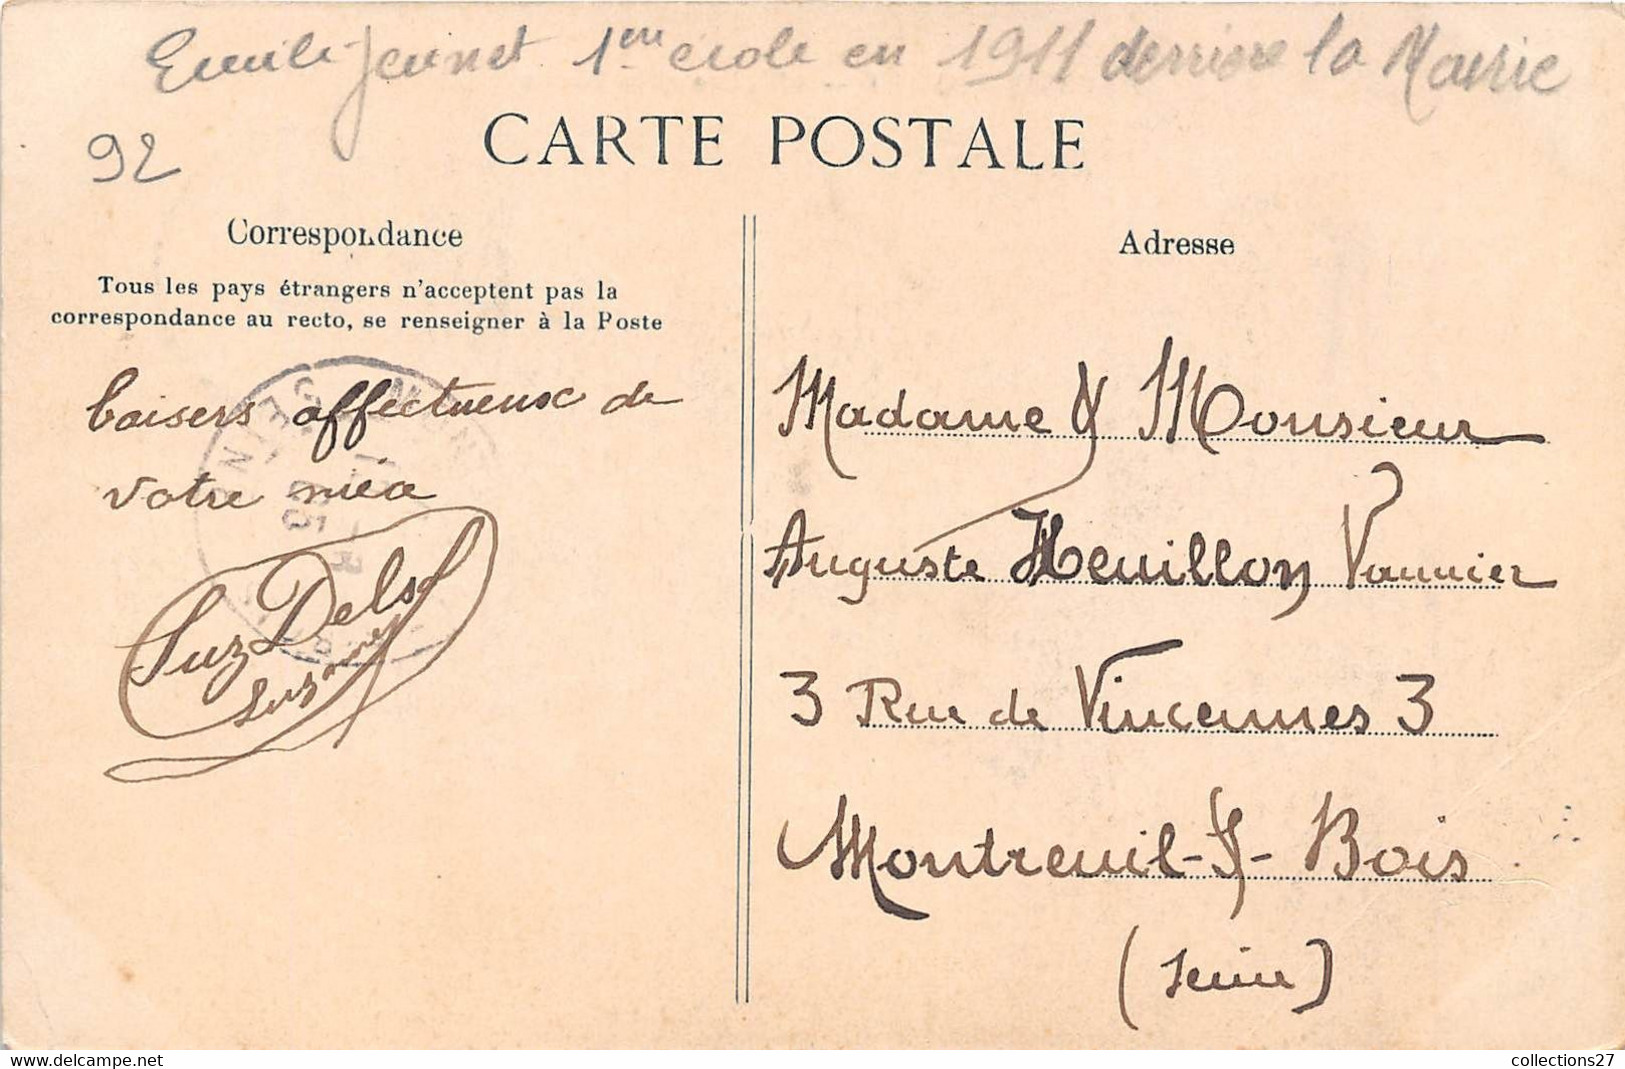 Emile Jeunet 1ere ecole en 1911 derriere la Mairie
92
CARTE POSTALE
Correspondance
Tous les pays étrangers n'acceptent pas la
correspondance au recto, se renseigner à la Poste
baisers affectueux de
votre nièce
Suz Dels
Suzanne
Adresse
Madame & Monsieur
Auguste Heuillon Vannier
3 Rue de Vincennes 3
Montreuil-s/-Bois
(Seine)
collections27